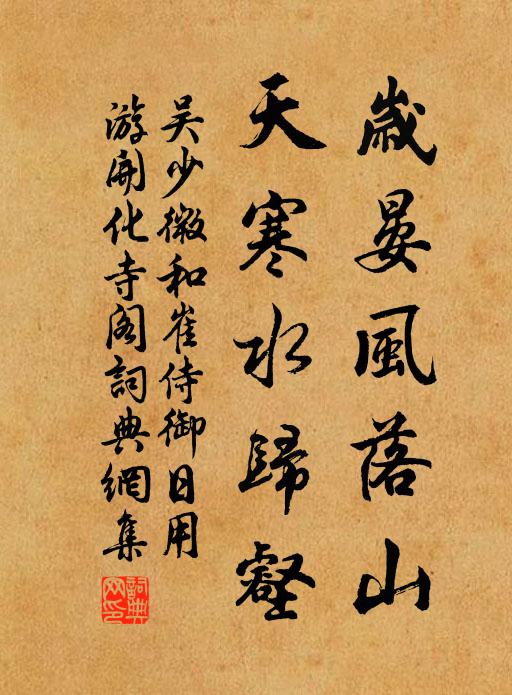 歲晏風落山
天寒水歸壑
吳少微和崔侍御日用
游開化寺閣詞典網集
詞典網印